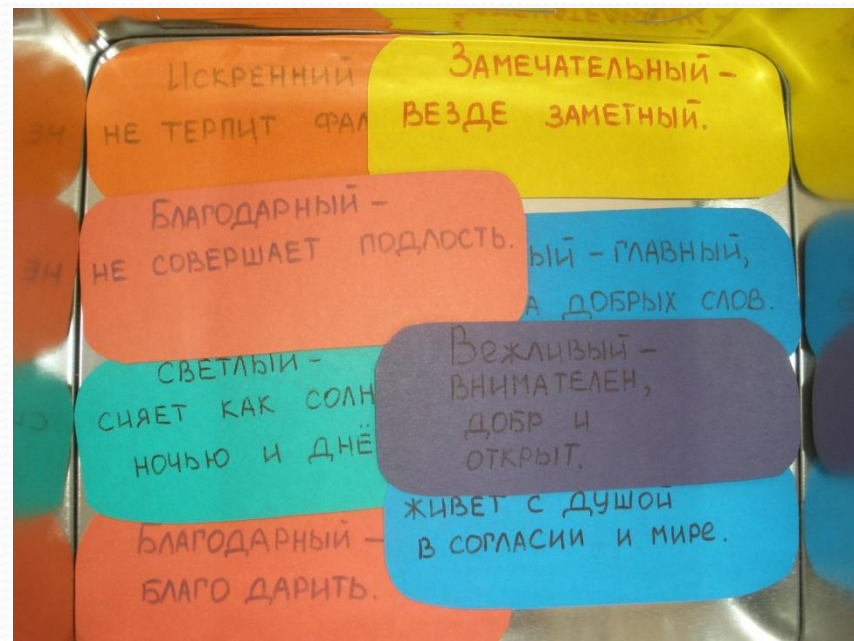 Искренний
не терпит
Замечательный –
везде заметный.
Благодарный –
не совершает подлость.
главный,
добрых слов.
Светлый –
сияет как
ночью и
Вежливый –
внимателен,
добр и
открыт.
живет с душой
в согласии и мире.
Благодарный –
благо дарить.